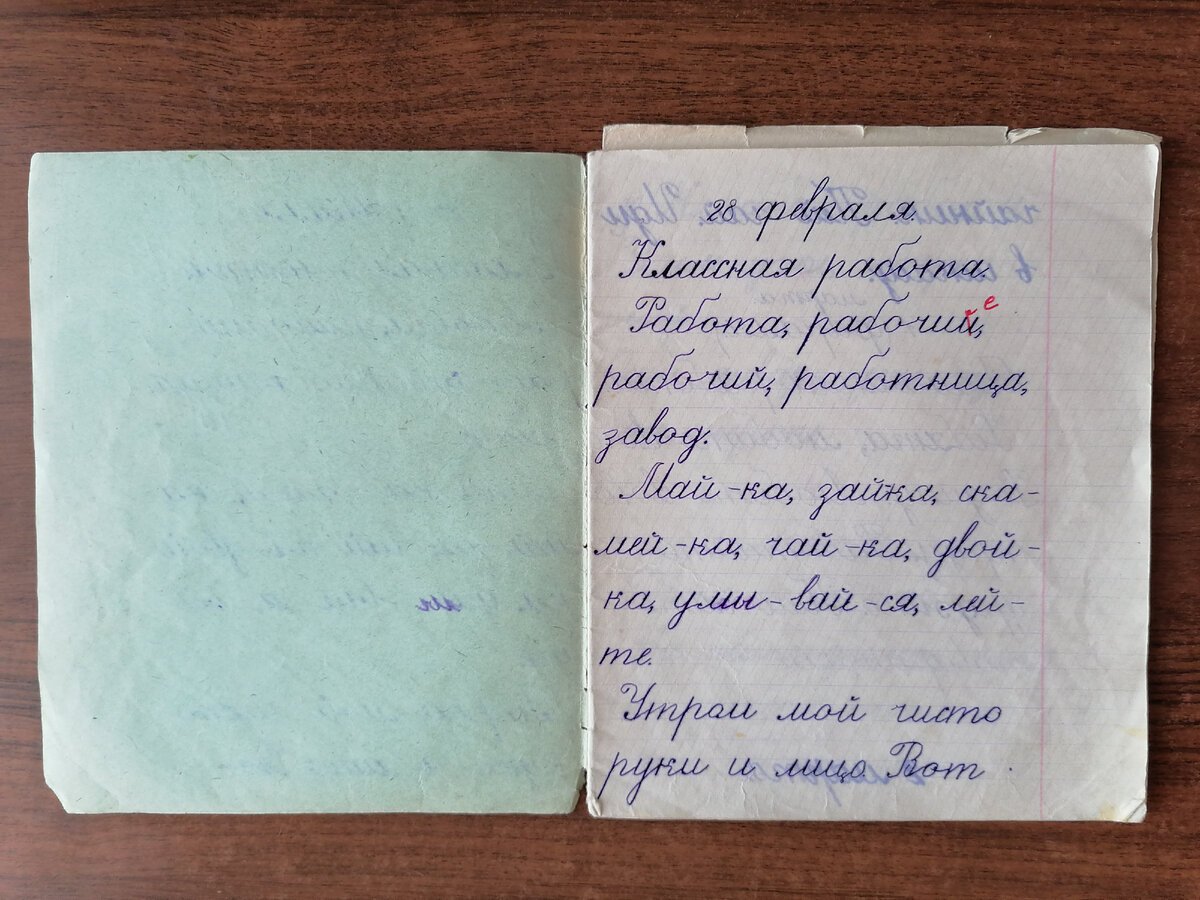 28 февраля.
Классная работа.
Работа, рабочий, е
рабочий, работница,
завод.
Май-ка, зайка, ска-
мей-ка, чай-ка, двой-
ка, умы-вай-ся, лей-
те.
Утром мой чисто
руки и лицо. Вот